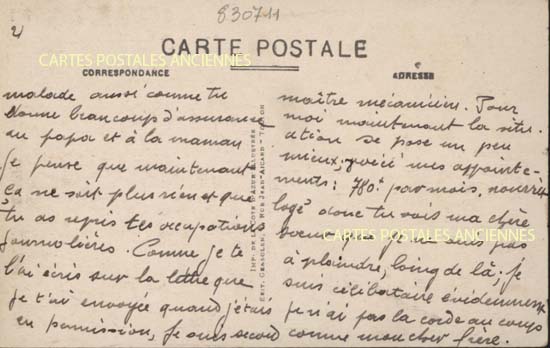 2/
830711
CARTES POSTALES ANCIENNES
CARTE POSTALE
CORRESPONDANCE
malade aussi comme tu
Donne beaucoup d'assurance
au papa et à la maman
je pense que maintenant
ça ne soit plus rien et que
tu as repris tes occupations
journalières. Comme je te
l'ai écris sur la lettre que
je t'ai envoyée quand j'étais
en permission, je suis second
ADRESSE
maître mécanicien. Pour
moi maintenant la situ-
ation se pose un peu
mieux, voici mes appointe-
ments: 780 par mois, nourri
logé donc tu vois ma chère
que je ne suis pas
à plaindre, loing de là; je
suis célibataire évidemment
je n'ai pas la corde au coup
comme mon cher frère.
CARTES POSTALES ANCIENNES
IMP. DE LA CÔTE D'AZUR ILLUSTRÉE
RUE JEAN-AICARD